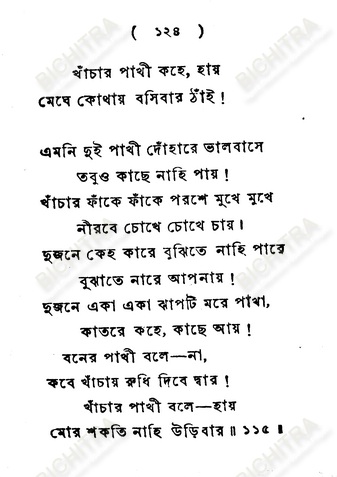 ( ১২৪ )
খাঁচার পাখী কহে, হায়
মেঘে কোথায় বসিবার ঠাঁই !
এমনি দুই পাখী দোঁহারে ভালবাসে
তবুও কাছে নাহি পায় !
খাঁচার ফাঁকে ফাঁকে পরশে মুখে মুখে
নীরবে চোখে চোখে চায় ।
দুজনে কেহ কারে বুঝিতে নাহি পারে
বুঝাতে নারে আপনায় !
দুজনে একা একা ঝাপটি মরে পাখা,
কাতরে কহে, কাছে আয় !
বনের পাখী বলে—না,
কবে খাঁচায় রুধি দিবে দ্বার !
খাঁচার পাখী বলে—হায়
মোর শকতি নাহি উড়িবার ॥ ১১৫ ॥
BICHITRA